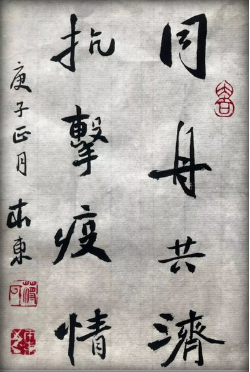 同舟共濟
抗擊疫情
庚子正月